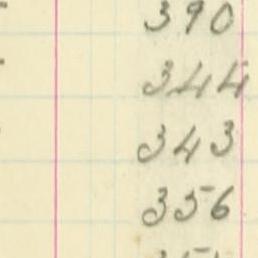 390
344
343
356